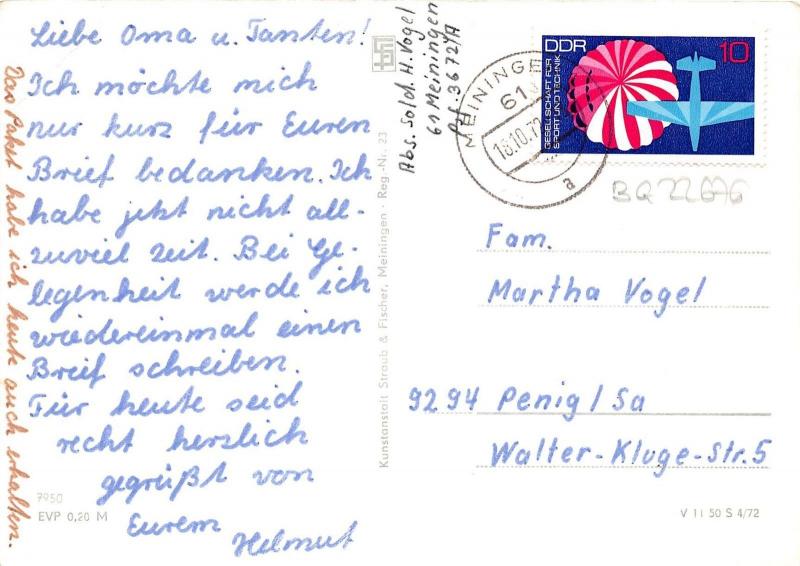 Liebe Oma u. Tanten!
Ich möchte mich
nur kurz für Euren
Brief bedanken. Ich
habe jetzt nicht all-
zuviel Zeit. Bei Ge-
legenheit werde ich
wiedereinmal einen
Brief schreiben.
Für heute seid
recht herzlich
gegrüßt von
Eurem
Helmut
Das Paket habe ich heute auch erhalten.
7950
EVP 0,20 M
Kunstanstalt Straub & Fischer, Meiningen · Reg.-Nr. 23
Abs. Sold. H. Vogel
61 Meiningen
MEININGEN
61
a
DDR 10
GESELLSCHAFT FÜR
SPORT UND TECHNIK
Fam.
Martha Vogel
9294 Penig/Sa
Walter-Kluge-Str. 5
V 11 50 S 4/72